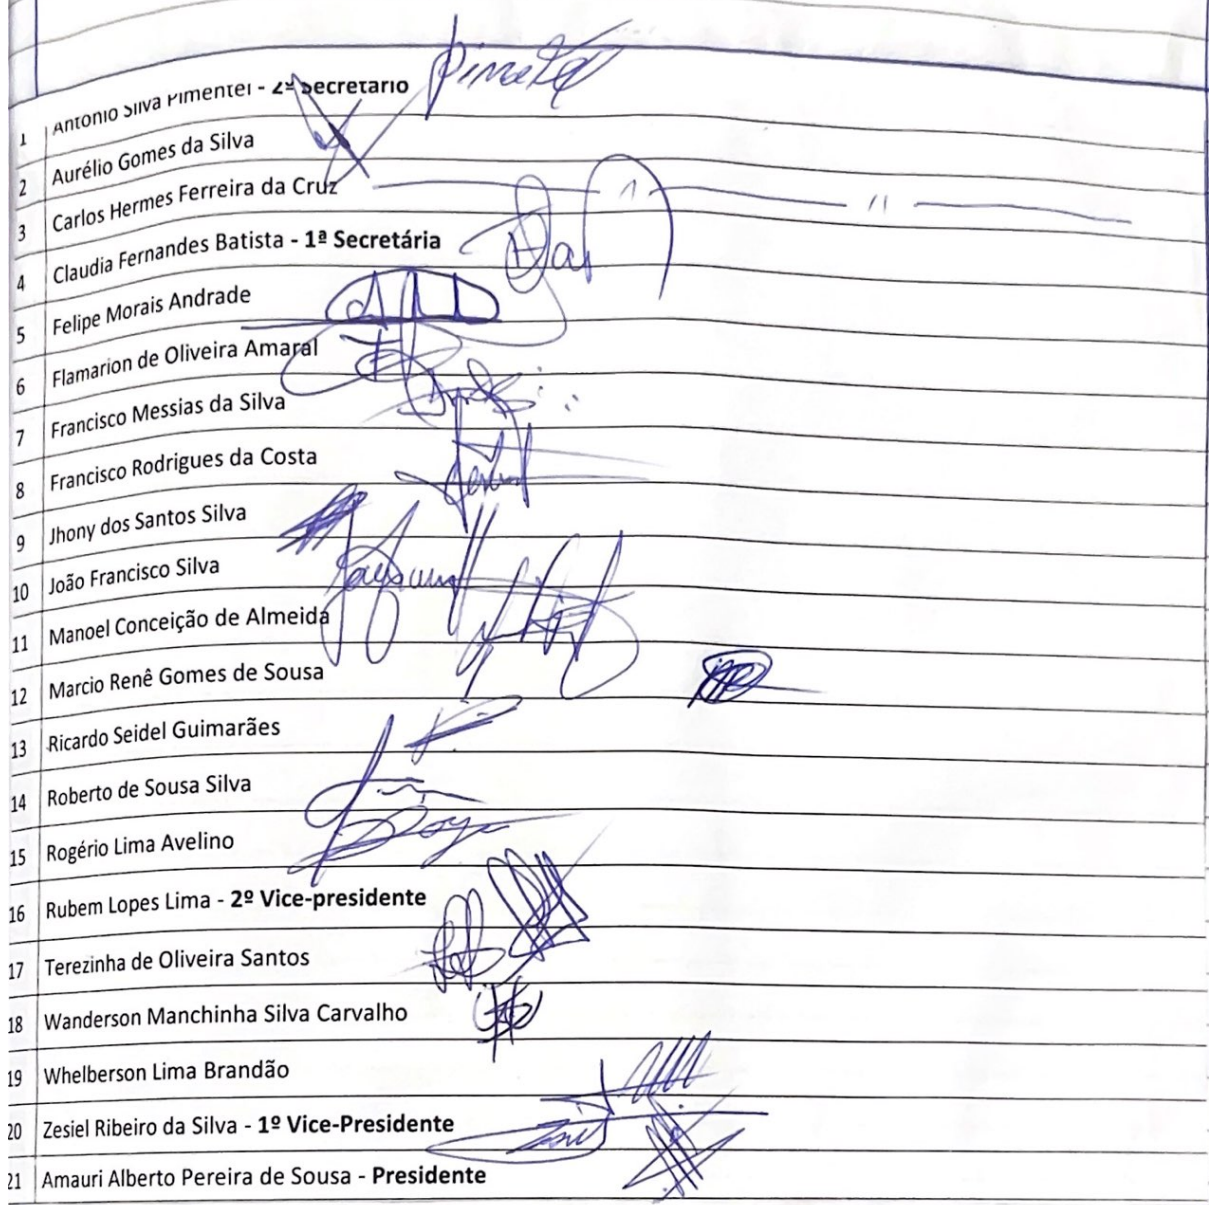 1 Antonio Silva Pimentel - 2º Secretário
2 Aurélio Gomes da Silva
3 Carlos Hermes Ferreira da Cruz
4 Claudia Fernandes Batista - 1ª Secretária
5 Felipe Morais Andrade
6 Flamarion de Oliveira Amaral
7 Francisco Messias da Silva
8 Francisco Rodrigues da Costa
9 Jhony dos Santos Silva
10 João Francisco Silva
11 Manoel Conceição de Almeida
12 Marcio Renê Gomes de Sousa
13 Ricardo Seidel Guimarães
14 Roberto de Sousa Silva
15 Rogério Lima Avelino
16 Rubem Lopes Lima - 2º Vice-presidente
17 Terezinha de Oliveira Santos
18 Wanderson Manchinha Silva Carvalho
19 Whelberson Lima Brandão
20 Zesiel Ribeiro da Silva - 1º Vice-Presidente
21 Amauri Alberto Pereira de Sousa - Presidente